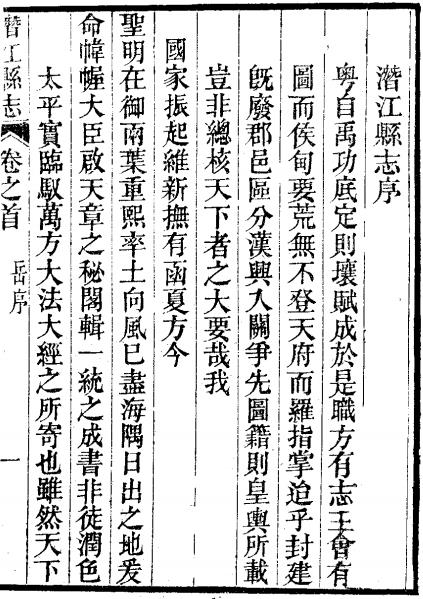 潛江縣志序
粵自禹功底定則壤賦成於是職方有志王會有
圖而侯甸要荒無不登天府而羅指掌迨乎封建
旣廢郡邑區分漢興入關爭先圖籍則皇輿所載
豈非總核天下者之大要哉我
國家振起維新撫有函夏方今
聖明在御兩葉重熙率土向風已盡海隅日出之地爰
命幃幄大臣啟天章之秘閣輯一統之成書非徒潤色
太平實臨馭萬方大法大經之所寄也雖然天下
潛江縣志
卷之首
岳序
一